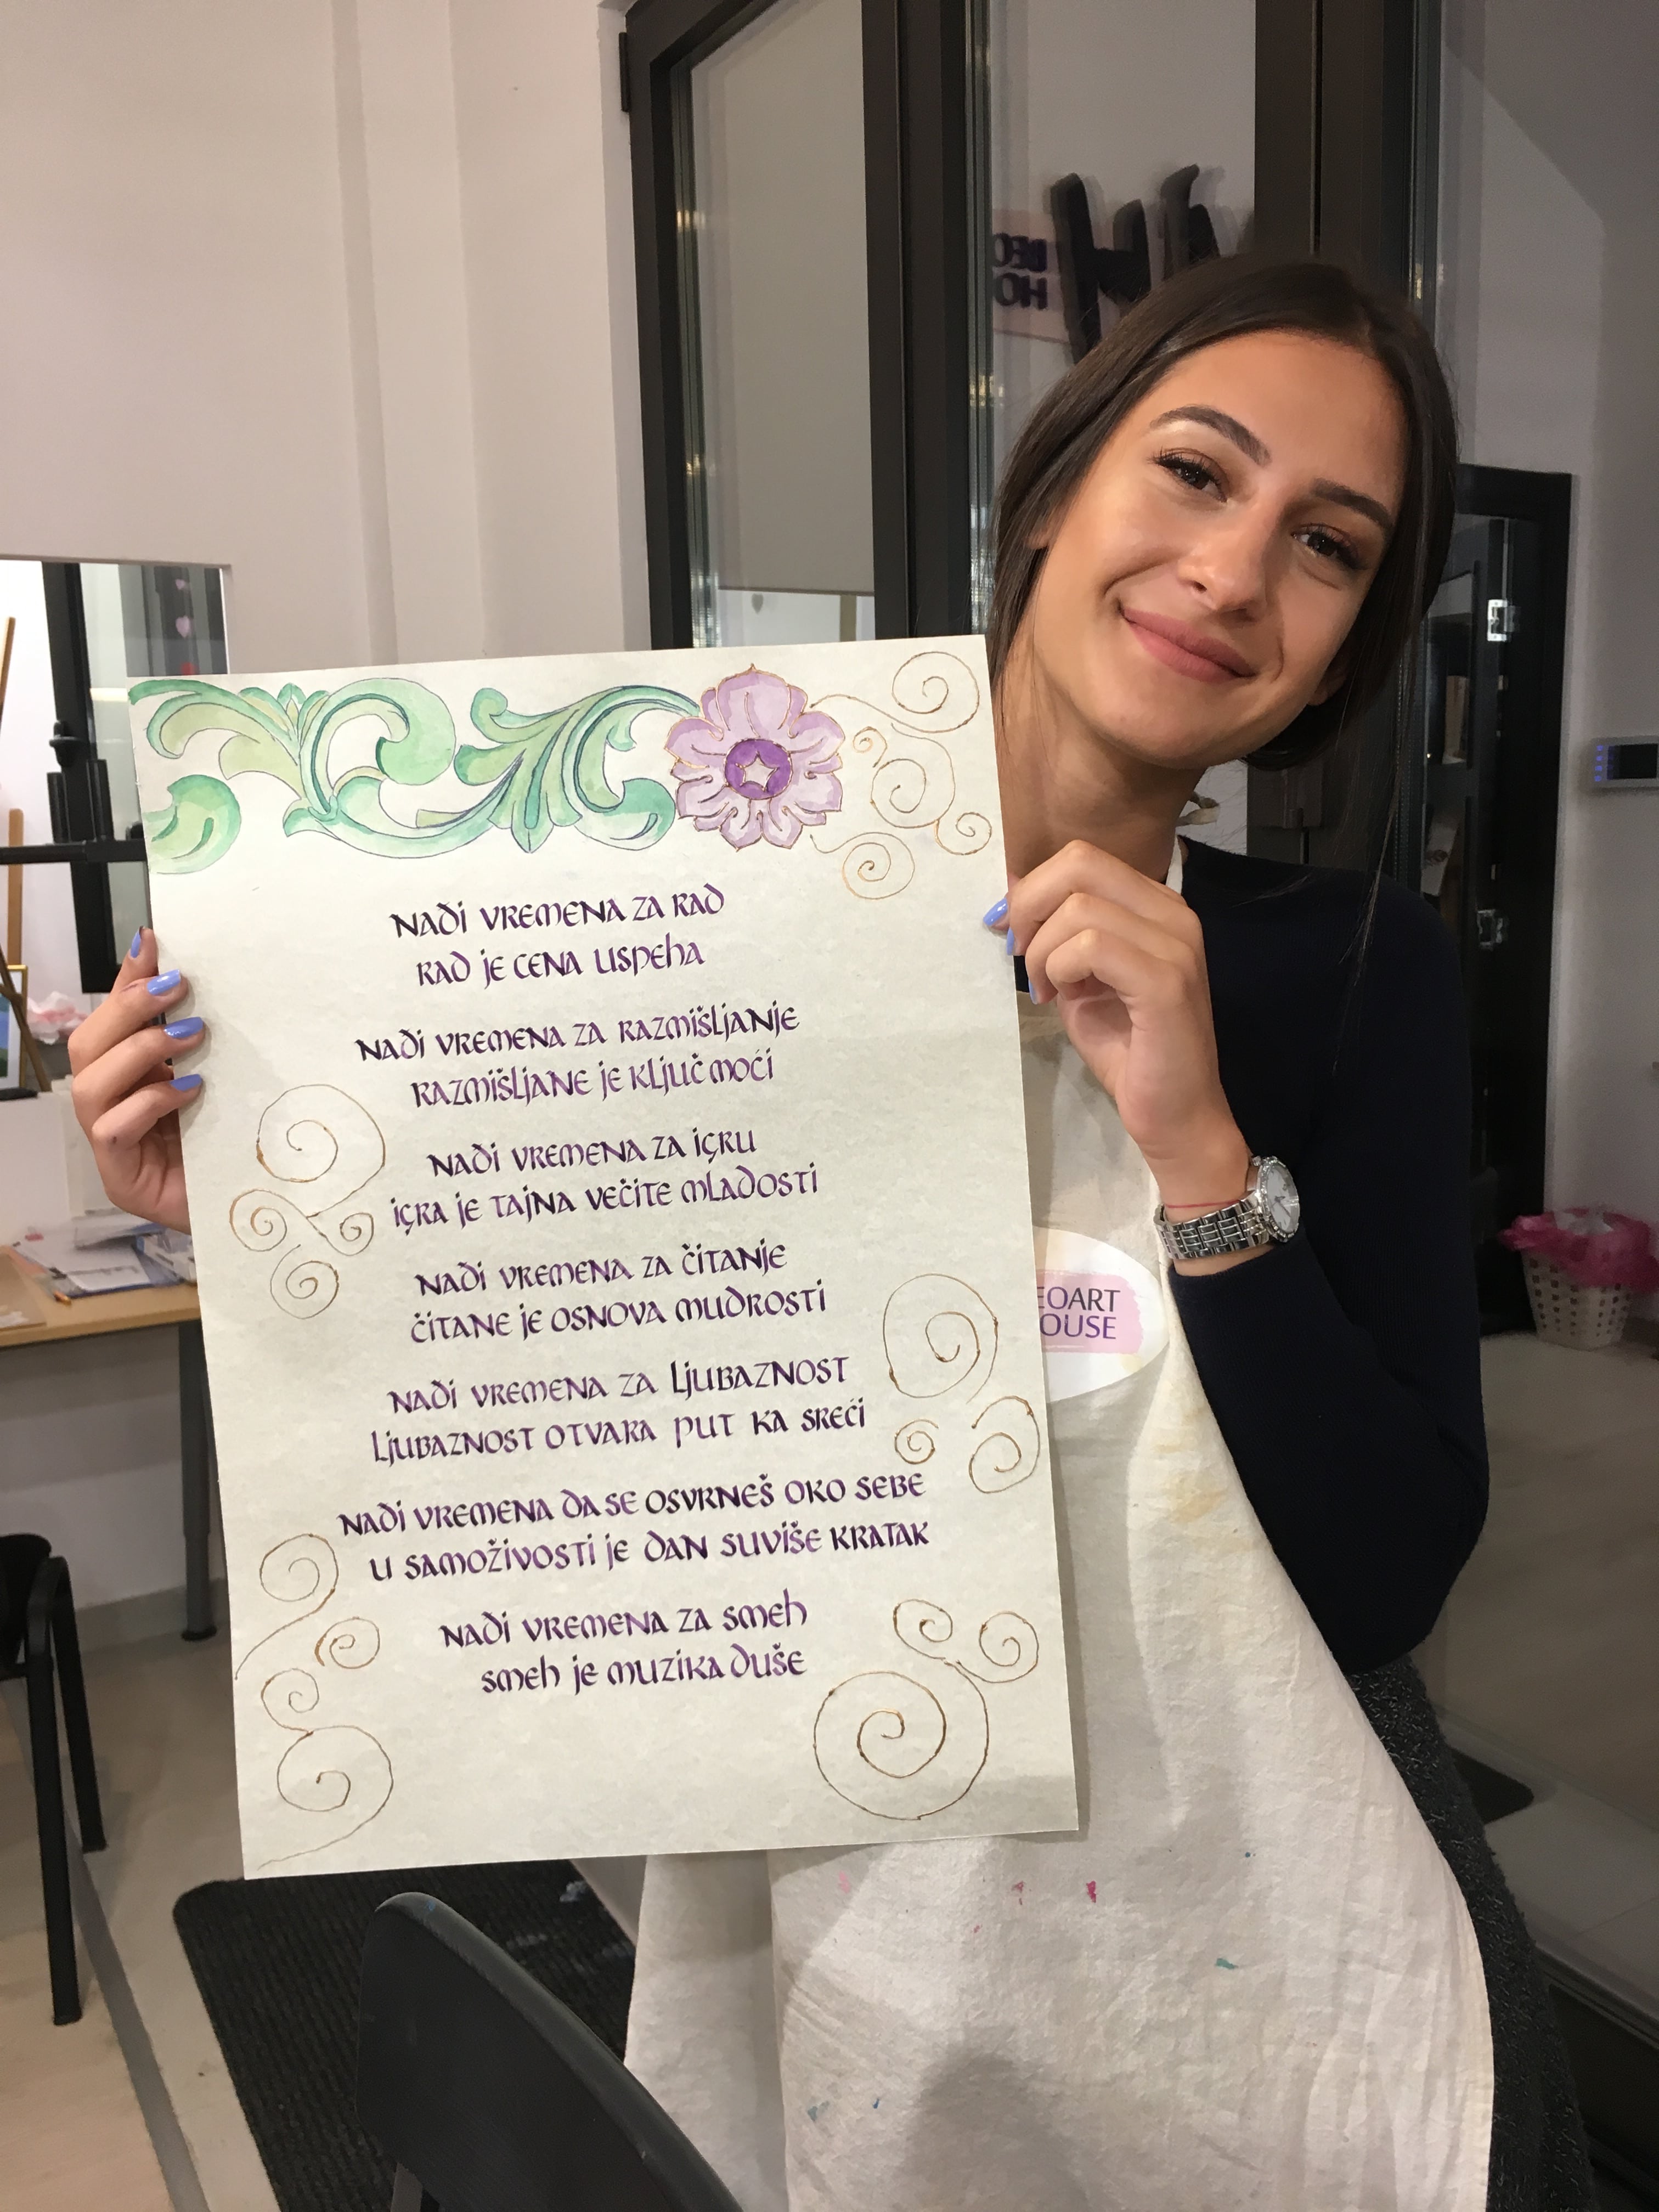 NAĐI VREMENA ZA RAD
RAD JE CENA USPEHA
NAĐI VREMENA ZA RAZMIŠLJANJE
RAZMIŠLJANE JE KLJUČ MOĆI
NAĐI VREMENA ZA IGRU
IGRA JE TAJNA VEČITE MLADOSTI
NAĐI VREMENA ZA ČITANJE
ČITANE JE OSNOVA MUDROSTI
NAĐI VREMENA ZA LJUBAZNOST
LJUBAZNOST OTVARA PUT KA SREĆI
NAĐI VREMENA DA SE OSVRNEŠ OKO SEBE
U SAMOŽIVOSTI JE DAN SUVIŠE KRATAK
NAĐI VREMENA ZA SMEH
SMEH JE MUZIKA DUŠE
EOART
OUSE